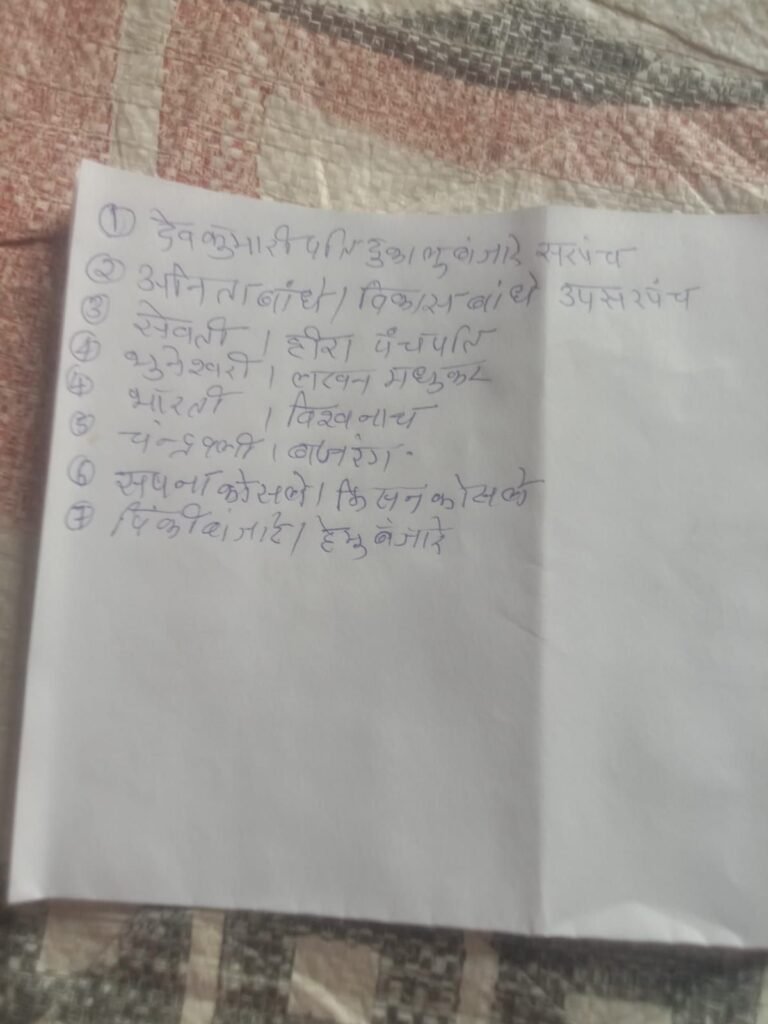 ① देवकुमारी पति दुकालु बंजारे सरपंच
② अनिता बांधे / विकास बांधे उपसरपंच
③ सेवती / हीरा पंचपति
④ भुनेश्वरी / लखन मधुकर
④ भारती / विश्वनाथ
⑤ / बजरंग
⑥ सपना कोसले / किसन कोसले
⑦ पिंकी बंजारे / हेमु बंजारे